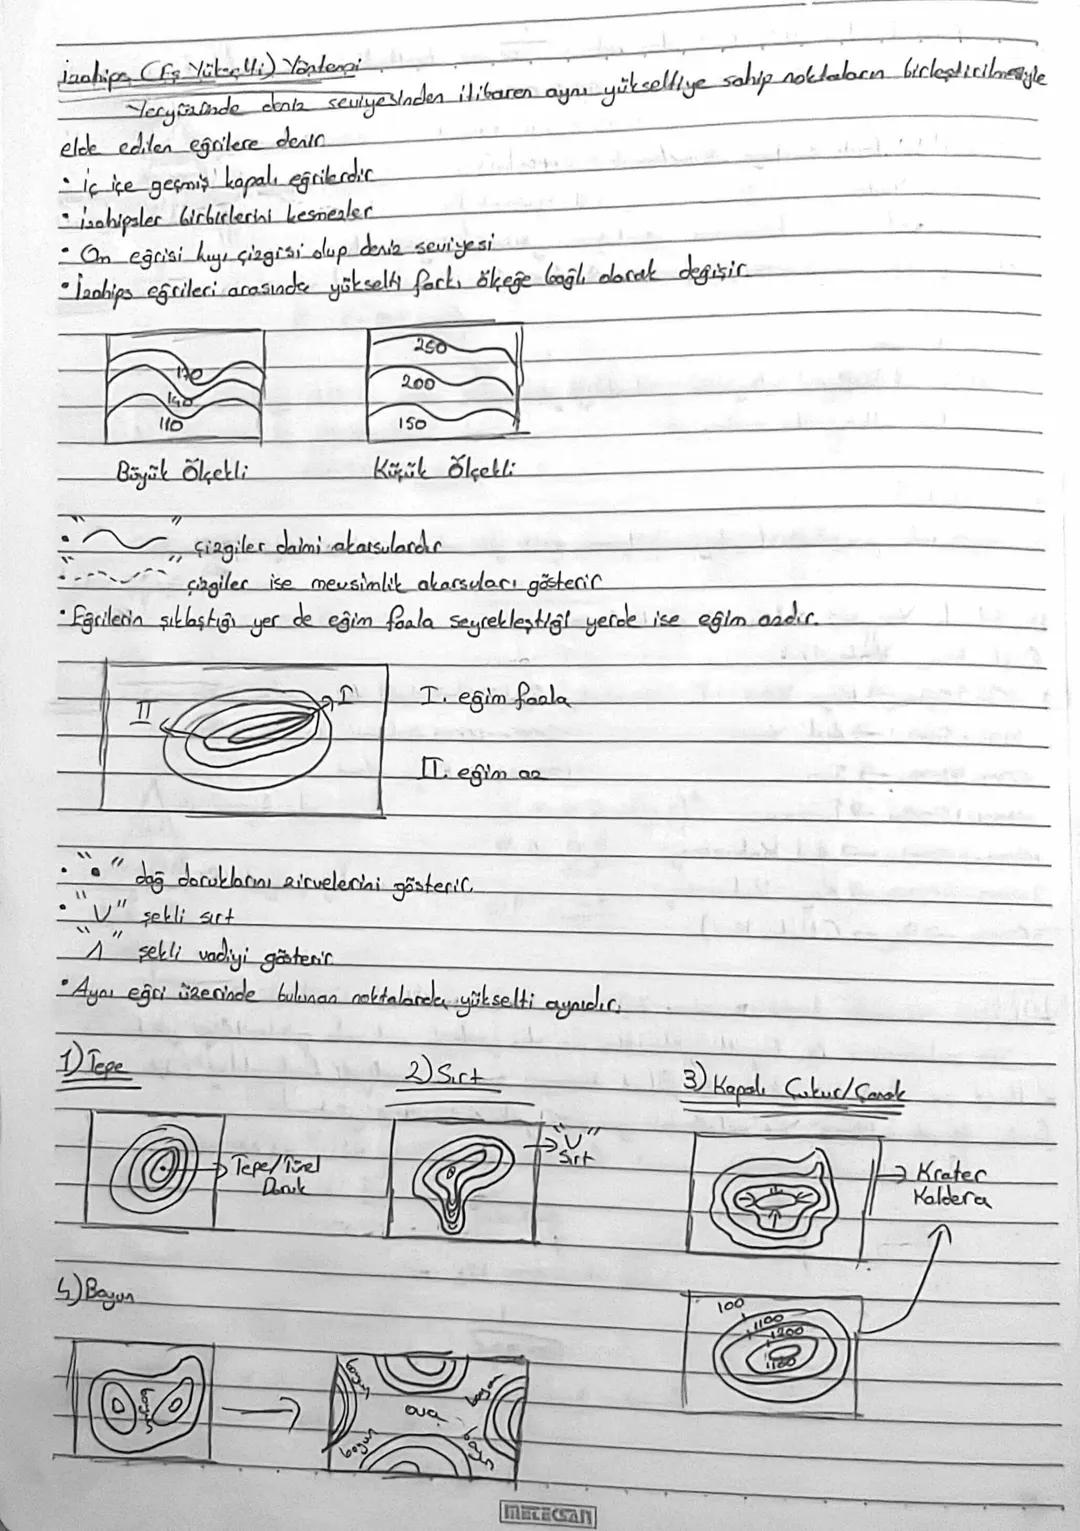 İzohips (Eş Yükselti) Yöntemi
Yeryüzünde deniz seviyesinden itibaren aynı yükseltiye sahip noktaların birleştirilmesiyle
elde edilen eğrilere denir.
• iç içe geçmiş kapalı eğrilerdir
• izohipsler birbirlerini kesmezler
• 0m eğrisi kıyı çizgisi olup deniz seviyesi
• İzohips eğrileri arasında yükselti farkı ölçeğe bağlı olarak değişir.
170
140
110
250
200
150
Büyük Ölçekli
Küçük Ölçekli
• " " çizgiler daimi akarsulardır
• " " çizgiler ise mevsimlik akarsuları gösterir
• Eğrilerin sıklaştığı yer de eğim fazla seyrekleştiği yerde ise eğim azdır.
II
I
I. eğim fazla
II. eğim az
• "•" dağ doruklarını zirvelerini gösterir.
• "V" şekli sırt
"Λ" şekli vadiyi gösterir.
• Aynı eğri üzerinde bulunan noktalarda yükselti aynıdır.
1) Tepe
2) Sırt
3) Kapalı Çukur/Çanak
Tepe/
Doruk
"V"
Sırt
Krater
Kaldera
4) Boyun
100
1100
1200
1100
boyun
boyun
boyun
ova
boyun
boyun
METEKSAN